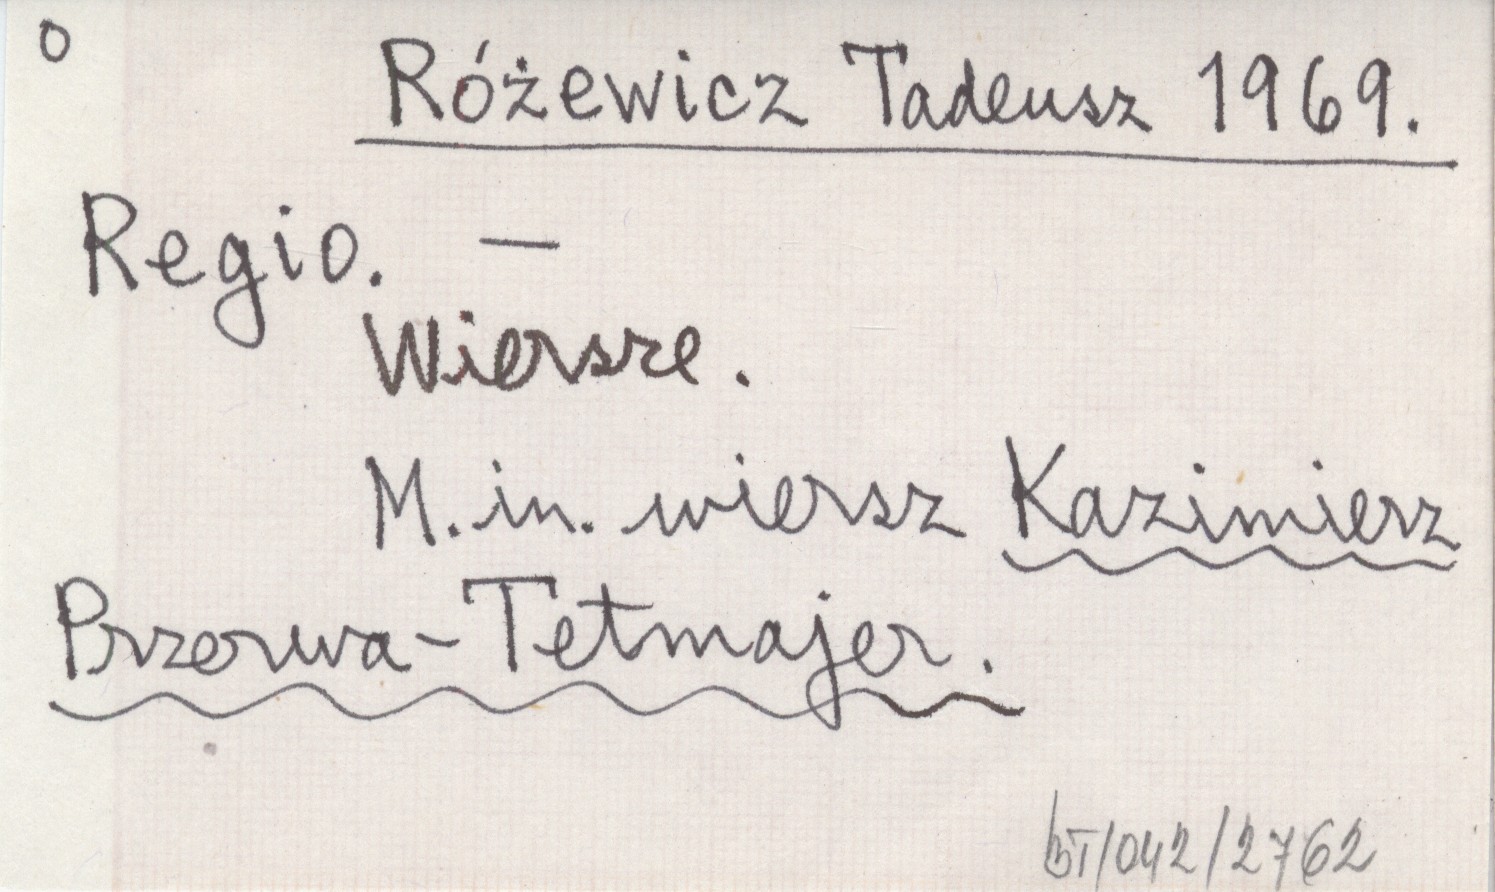 0
Różewicz Tadeusz 1969.
Regio. —
Wiersze.
M. in. wiersz Kazimierz
Przerwa-Tetmajer.
BT/042/2762